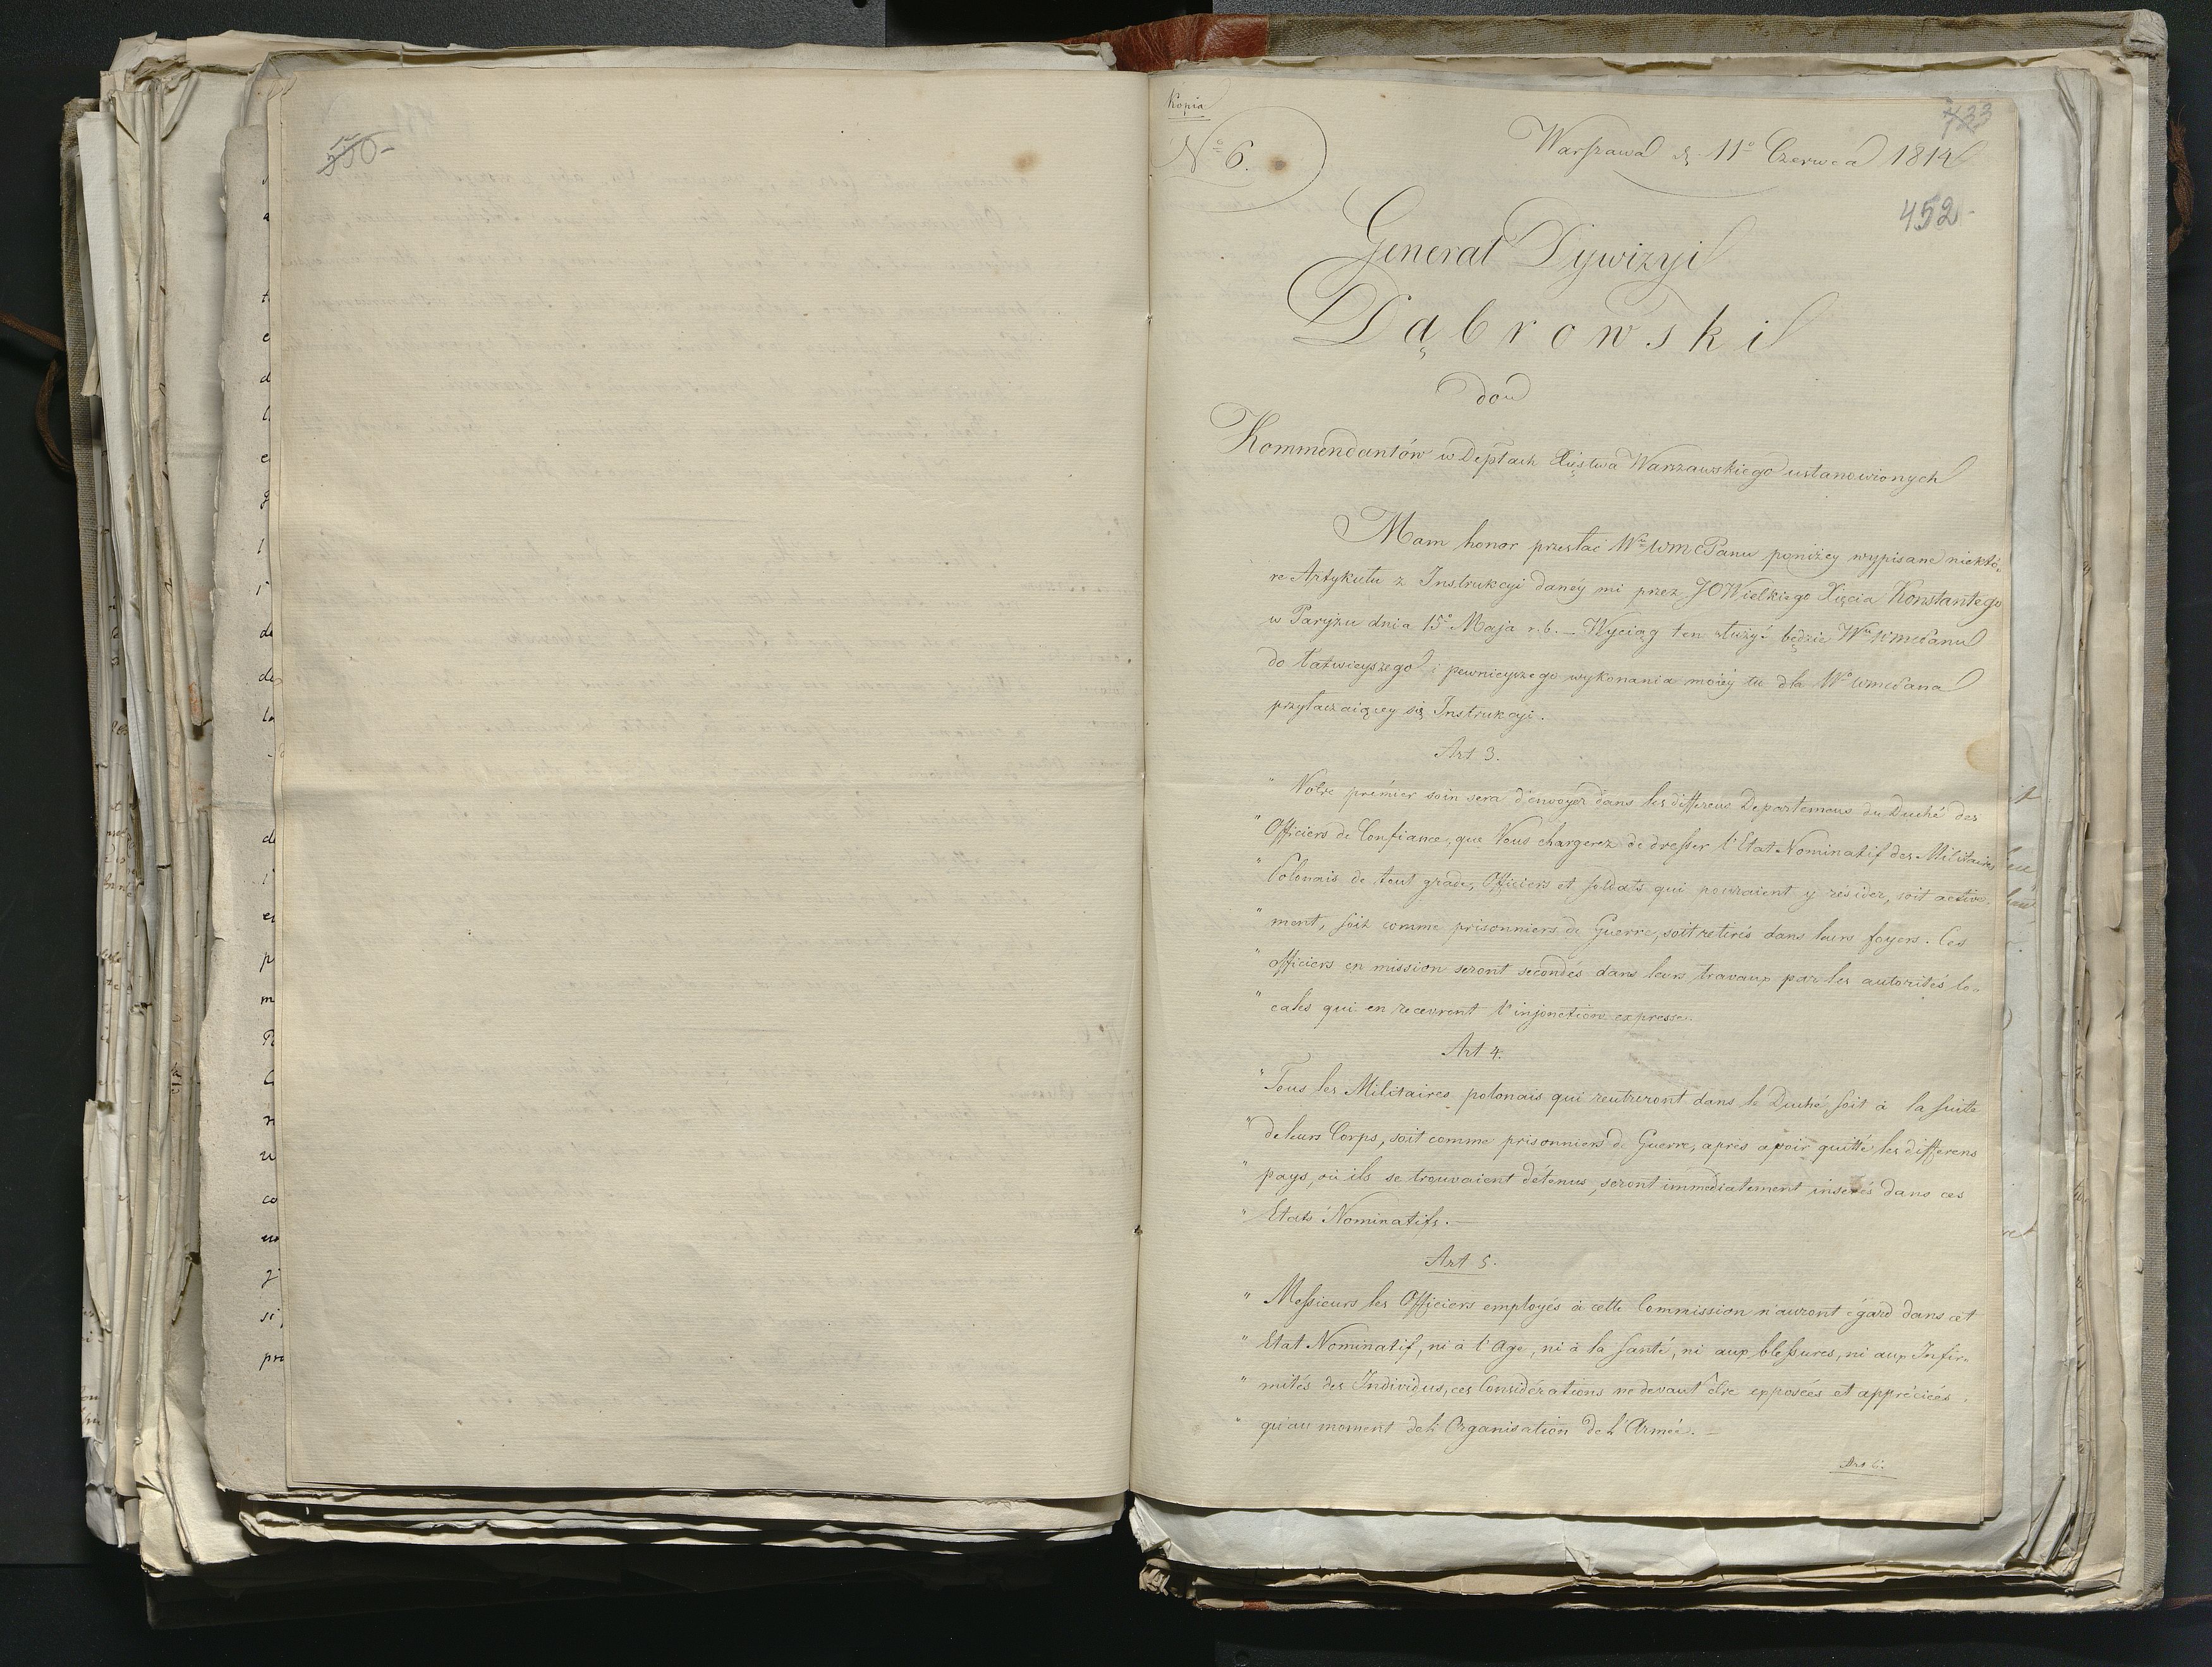 550-
Kopia
No 6.
733
Warszawa d. 11o Czerwca 1814
452-
Generał Dywizyi
Dąbrowski
do
Kommendantów w Deptach Xięstwa Warszawskiego ustanowionych
Mam honor przesłać WmPanu poniżey wypisane niektó-
re Artykułu z Instrukcyi daney mi przez JO Wielkiego Xięcia Konstantego
w Paryżu dnia 15o Maja r. b. – Wyciąg ten służyć będzie WmPanu
do łatwieyszego i pewnieyszego wykonania moiey tu dla WmPana
przyłaczaiącey się Instrukcyi.
Art 3.
" Votre prémier soin sera d'envoyer dans les differens Departemens du Duché des
" Officiers de Confiance, que Vous chargerez de dresser l'Etat Nominatif des Militaires
" Polonais de tout grade, Officiers et soldats qui pouraient y resider, soit active-
" ment, soit comme prisonniers de Guerre, soit retirés dans leurs foyers. Ces
" officiers en mission seront secondés dans leurs travaux par les autorités lo-
" cales qui en recevront l'injonction expresse.
Art 4.
" Tous les Militaires polonais qui rentreront dans le Duché soit à la suite
" de leurs Corps, soit comme prisonniers de Guerre, aprés avoir quitté les differens
" pays, où ils se trouvaient détenus, seront immediatement inserés dans ces
" Etats Nominatifs. –
Art 5.
" Messieurs les Officiers employés à cette Commission n'auront égard dans cet
" Etat Nominatif, ni à l'Age, ni à la santé, ni aux blessures, ni aux Infir-
" mités des Individus, ces Considérations ne devant être exposées et appréciées
" qu'au moment de l'Organisation de l'Armée. –
Art 6.